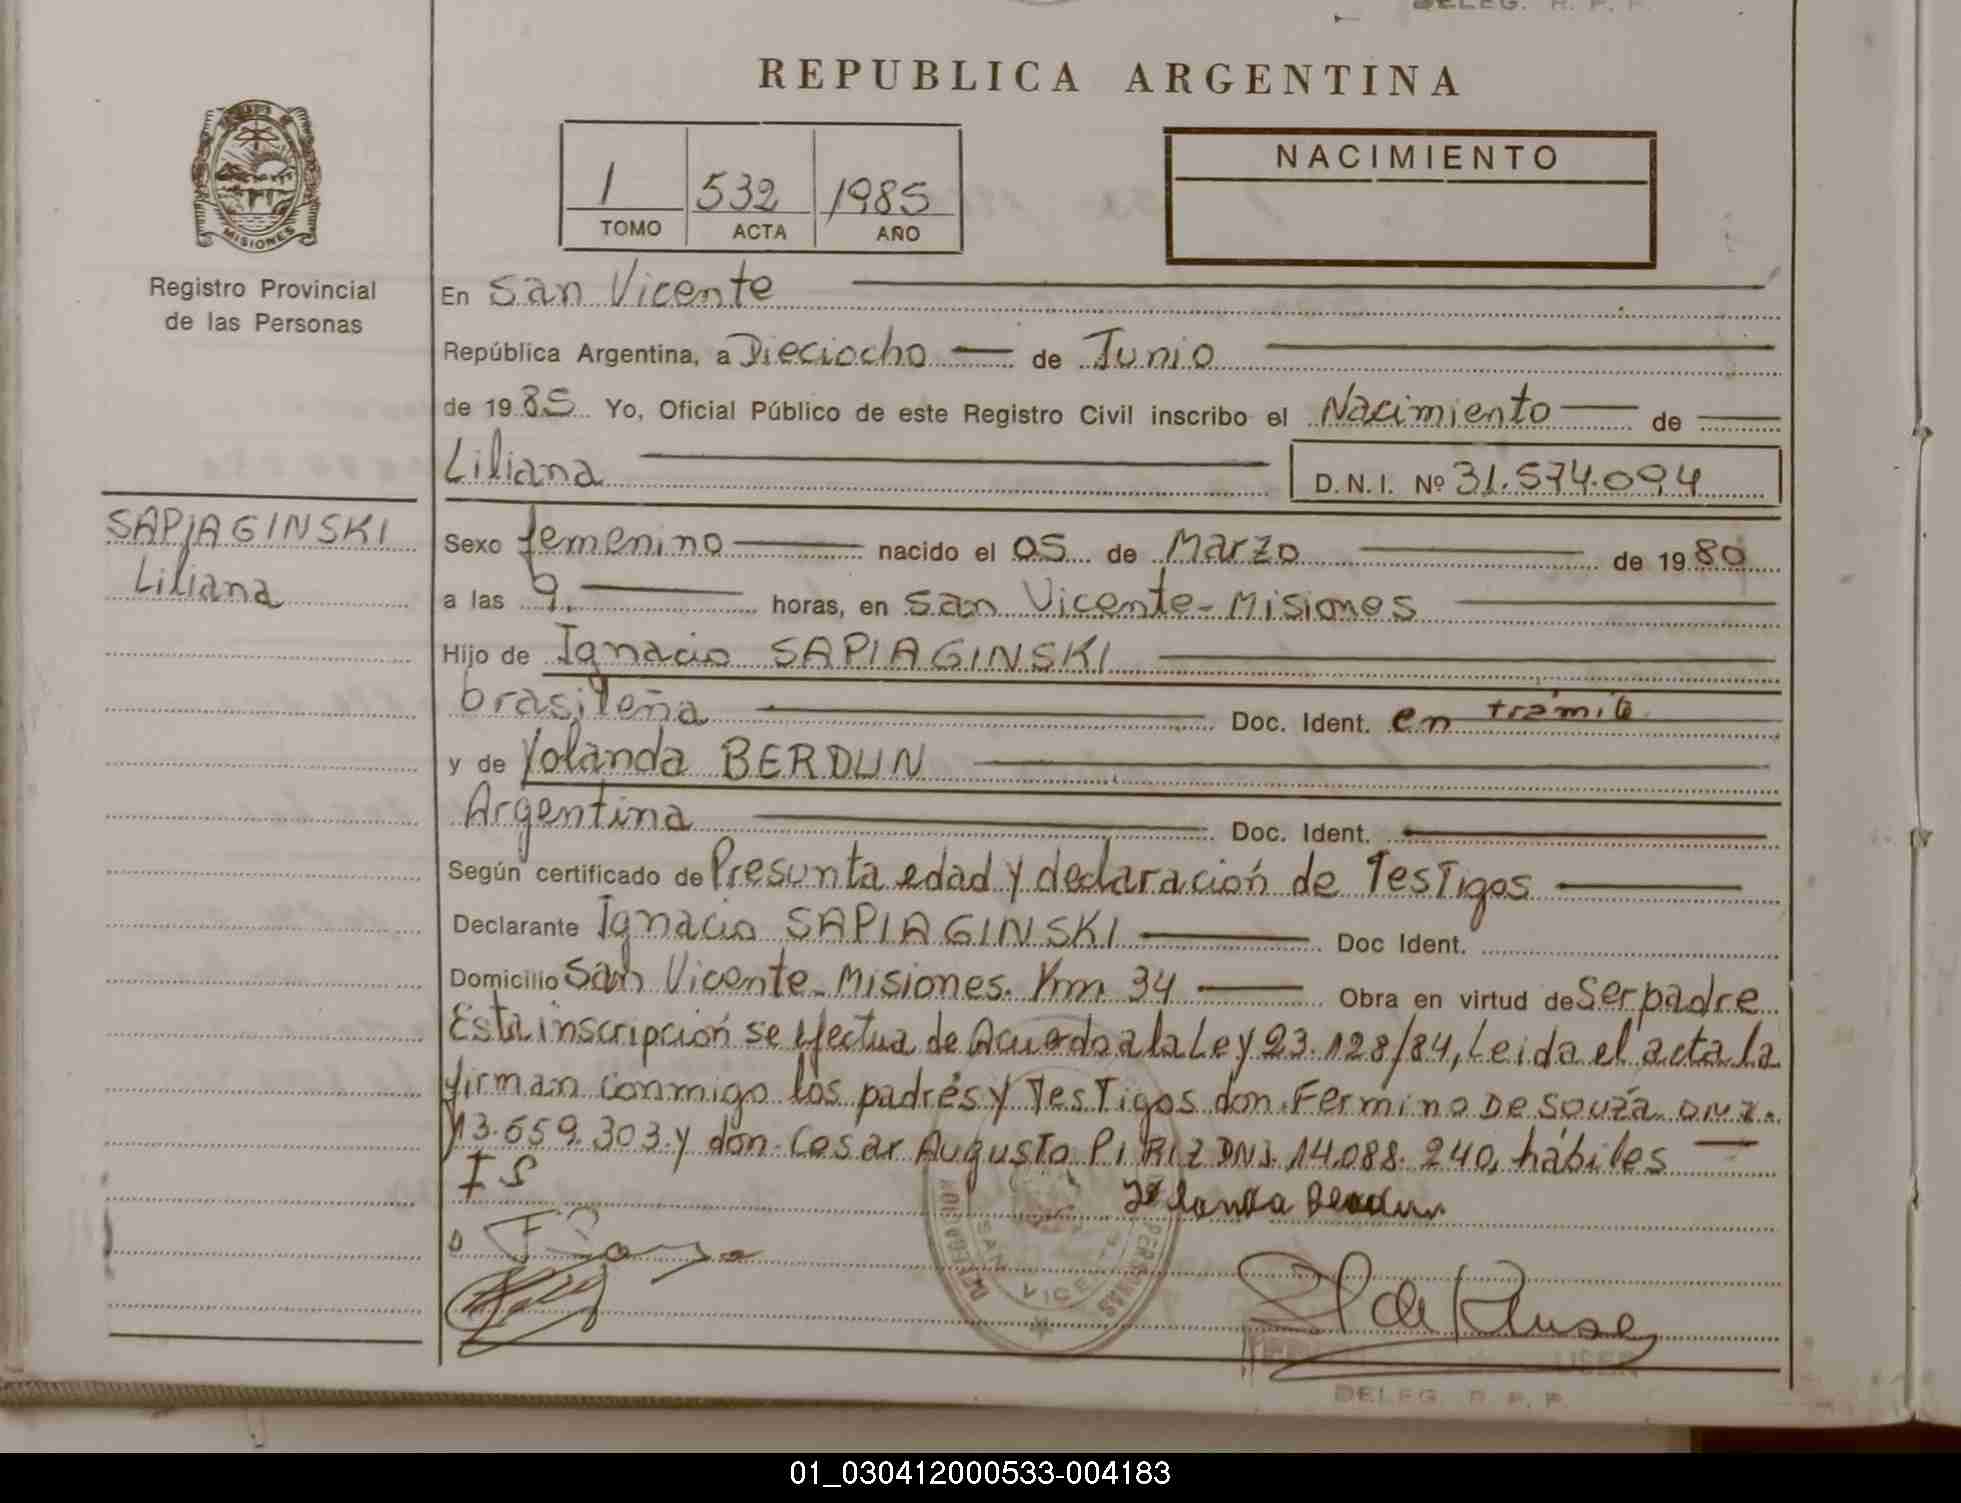 DELEG. R. P. P.
REPUBLICA ARGENTINA
MISIONES
Registro Provincial
de las Personas
1 532 1985
TOMO ACTA AÑO
NACIMIENTO
En San Vicente
República Argentina, a Dieciocho de Junio
de 1985 Yo, Oficial Público de este Registro Civil inscribo el Nacimiento de
Liliana D.N.I. Nº 31.574.094
SAPIAGINSKI
Liliana
Sexo femenino nacido el 05 de Marzo de 1980
a las 9. horas, en San Vicente-Misiones
Hijo de Ignacio SAPIAGINSKI
brasileña Doc. Ident. en trámite
y de Yolanda BERDUN
Argentina Doc. Ident.
Según certificado de Presunta edad y declaración de Testigos
Declarante Ignacio SAPIAGINSKI Doc Ident.
Domicilio San Vicente-Misiones. Km 34 Obra en virtud de Ser padre
Esta inscripción se efectua de Acuerdo a la Ley 23.128/84, Leida el acta la
firman conmigo los padres y Testigos don Fermino De Souza DNI.
13.659.303 y don Cesar Augusto PIRIZ DNI. 14.088.240, hábiles
I S
Yolanda Berdun
SAN VICENTE
PERSONAS
DELEG. R. P. P.
01_030412000533-004183